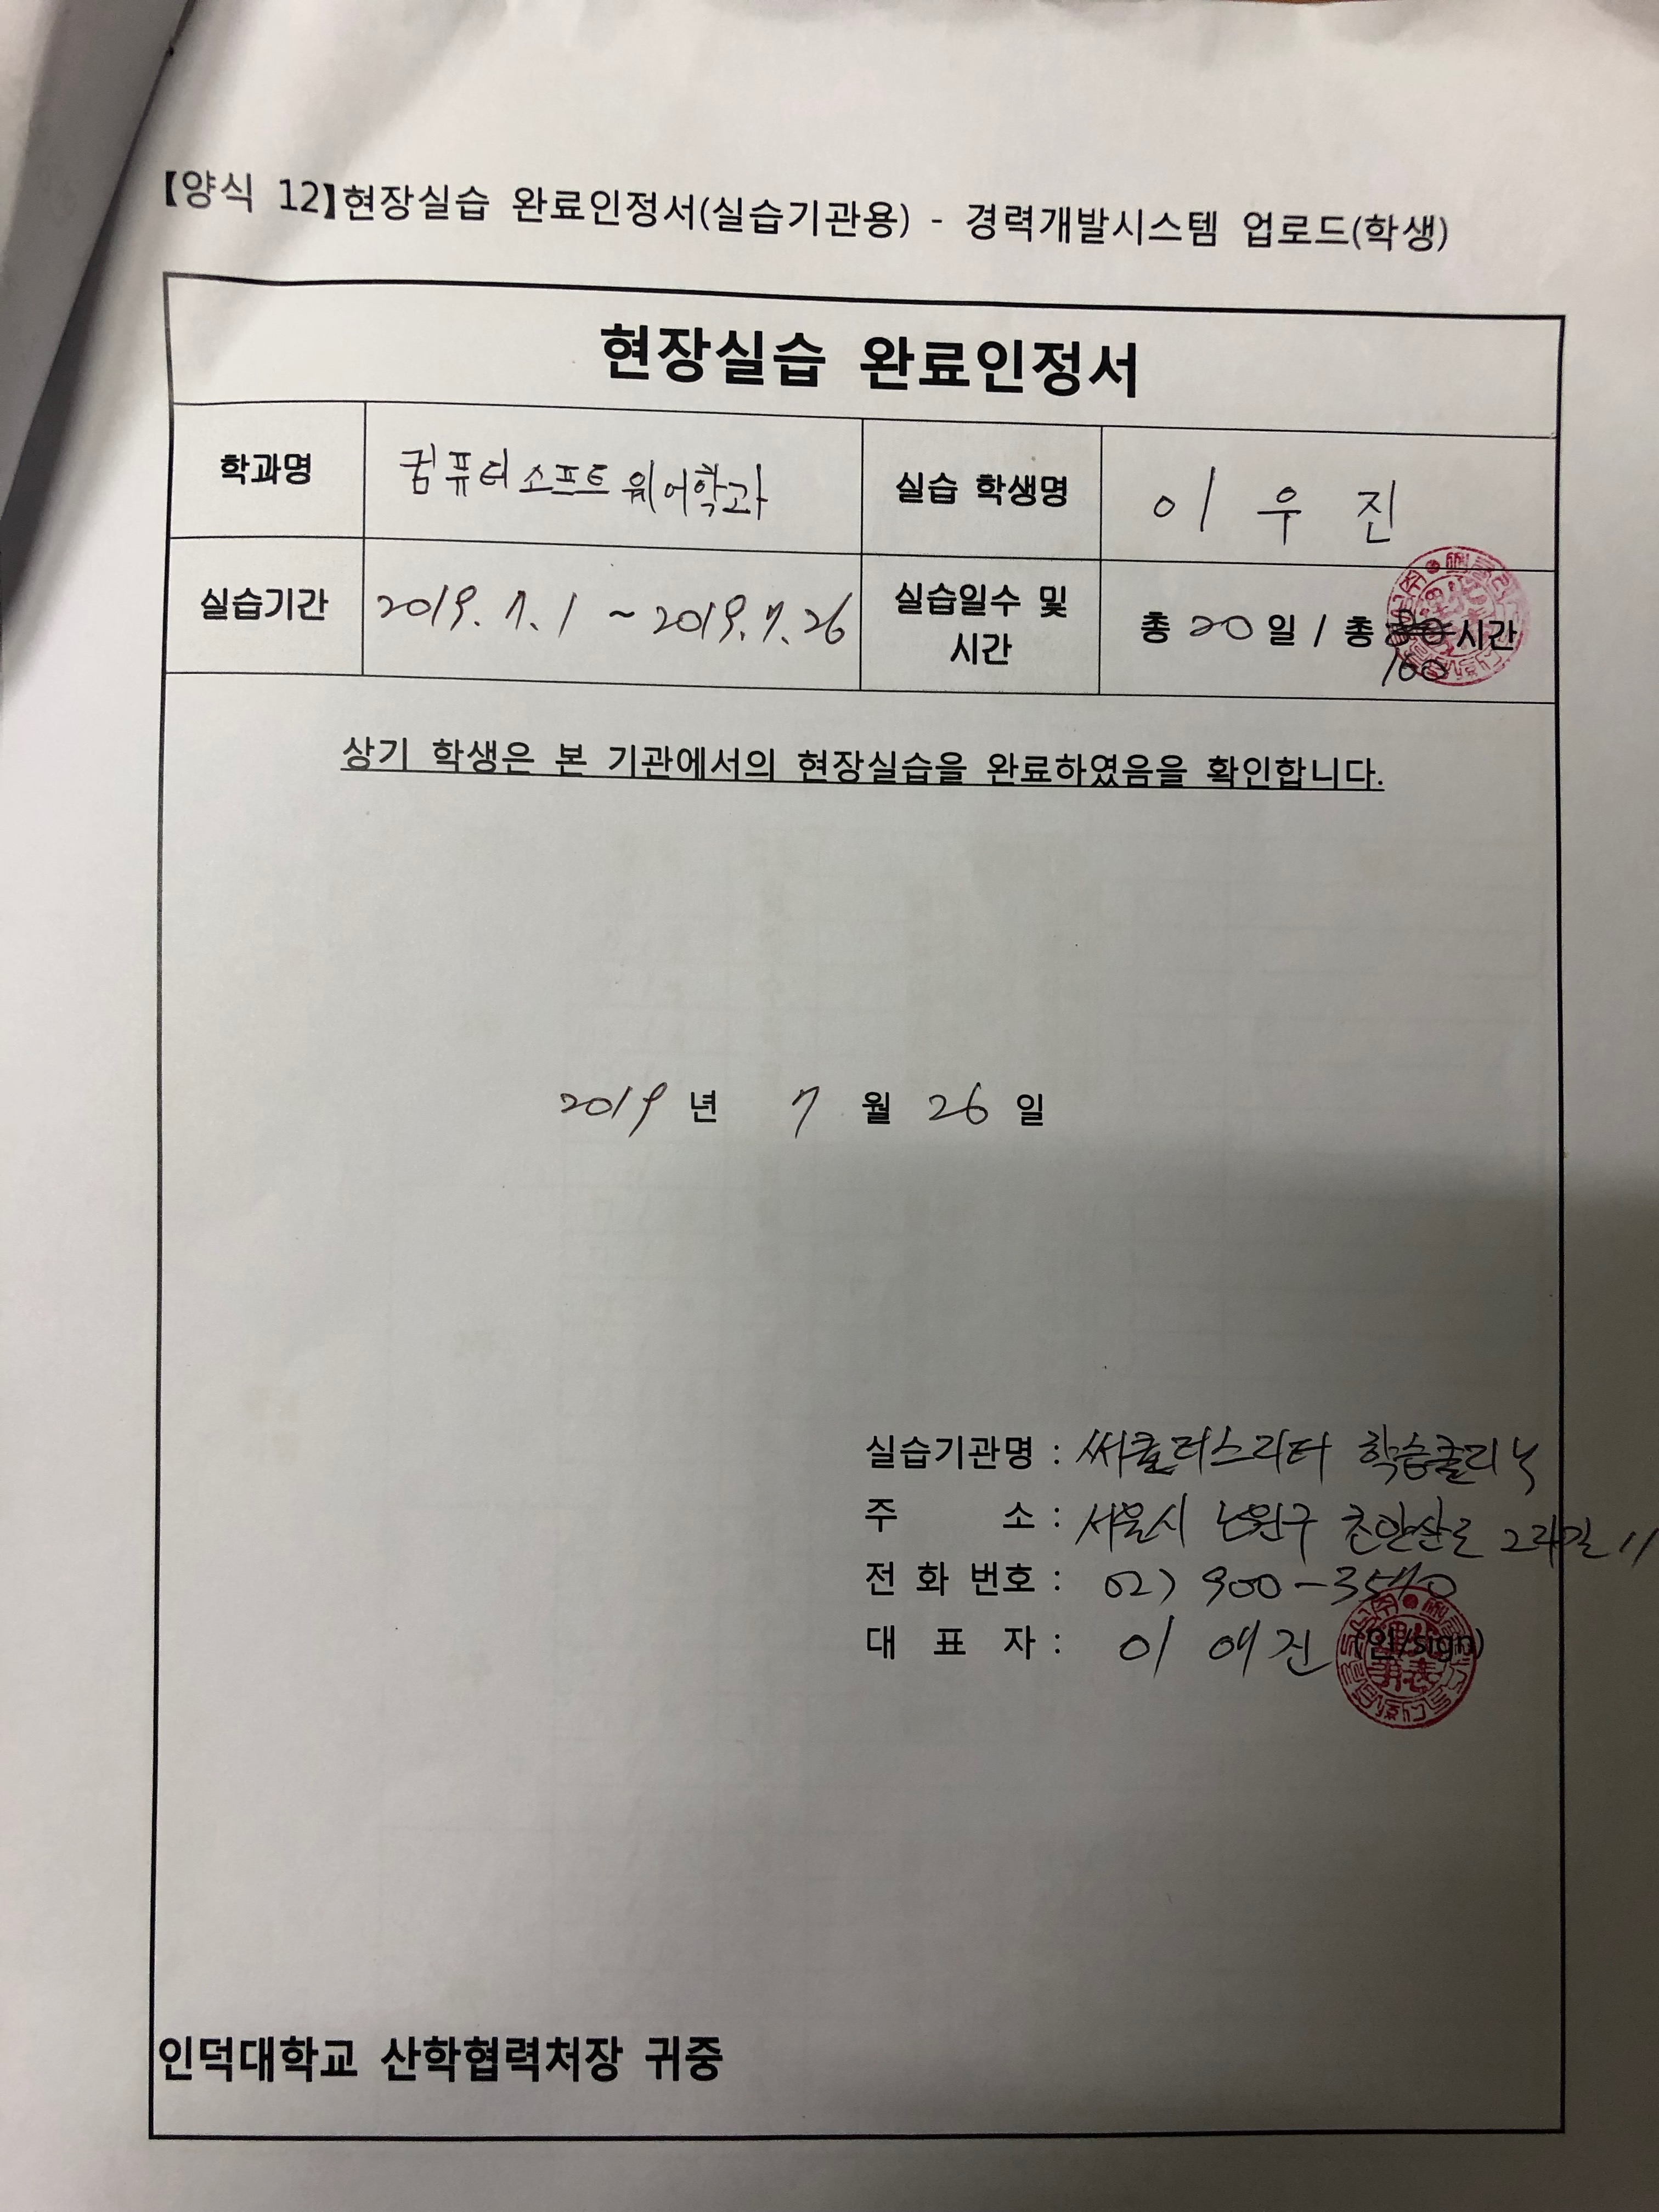 【양식 12】현장실습 완료인정서(실습기관용) - 경력개발시스템 업로드(학생)
현장실습 완료인정서
학과명 컴퓨터소프트웨어학과 실습 학생명 이 우 진
실습기간 2019. 7. 1 ~ 2019. 7. 26 실습일수 및 시간 총 20 일 / 총 시간
160
상기 학생은 본 기관에서의 현장실습을 완료하였음을 확인합니다.
2019 년 7 월 26 일
실습기관명 : 학습클리닉
주 소 : 서울시 노원구 초안산로 2라길 11
전 화 번호 : 02) 900-3570
대 표 자 : 이 애 진 (인/sign)
인덕대학교 산학협력처장 귀중